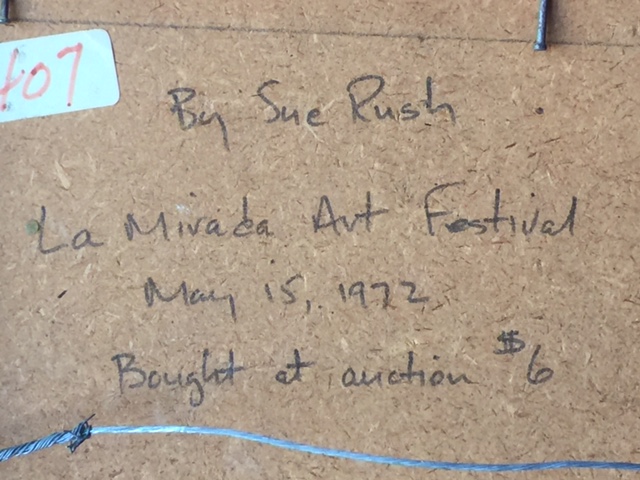 407
By Sue Rush
La Mirada Art Festival
May 15, 1972
Bought at auction $6